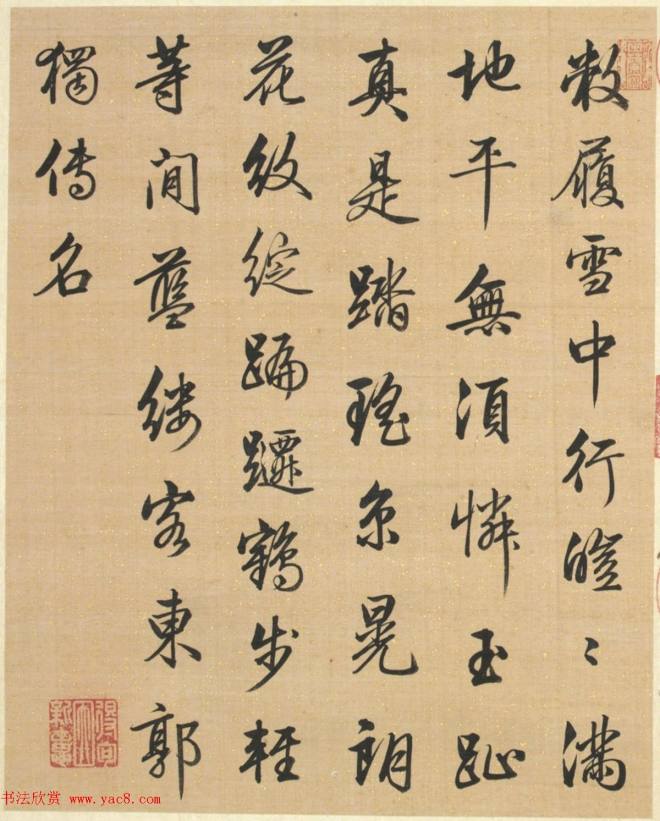 敝履雪中行皚〻滿
地平無須憐玉趾
真是踏瑤京晃朗
花紋綻蹁躚鶴步輕
等閒藍縷客東郭
獨傳名
书法欣赏 www.yac8.com